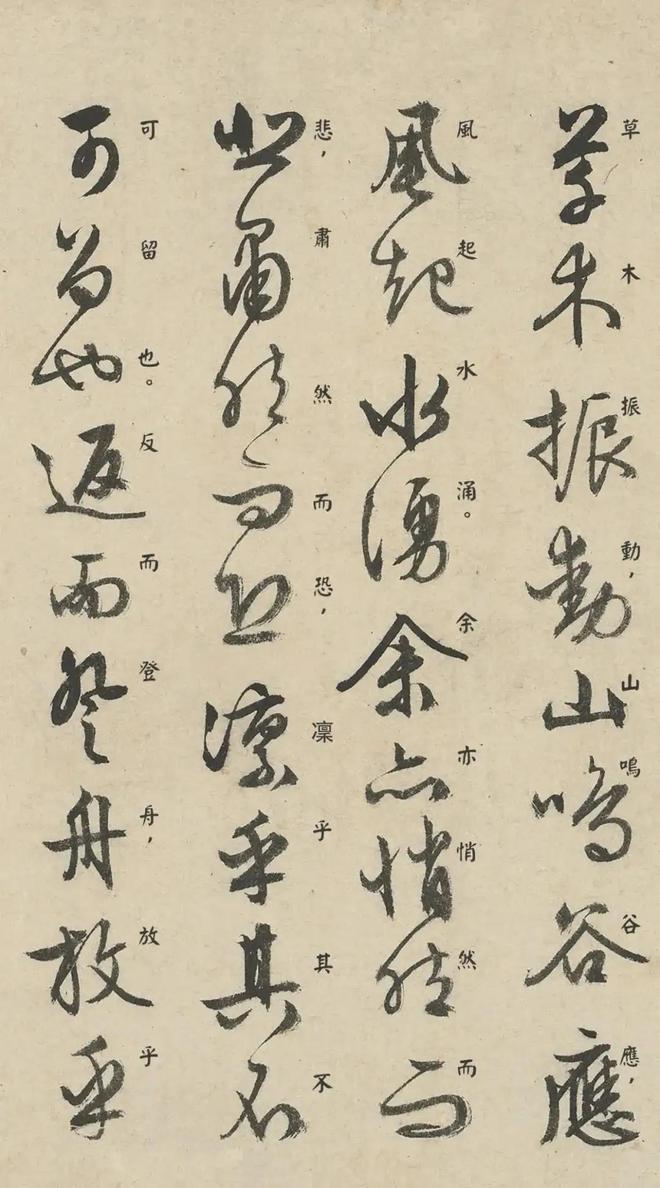 草木振動，山鳴谷應，
風起水涌。余亦悄然而
悲，肅然而恐，凛乎其不
可留也。反而登舟，放乎